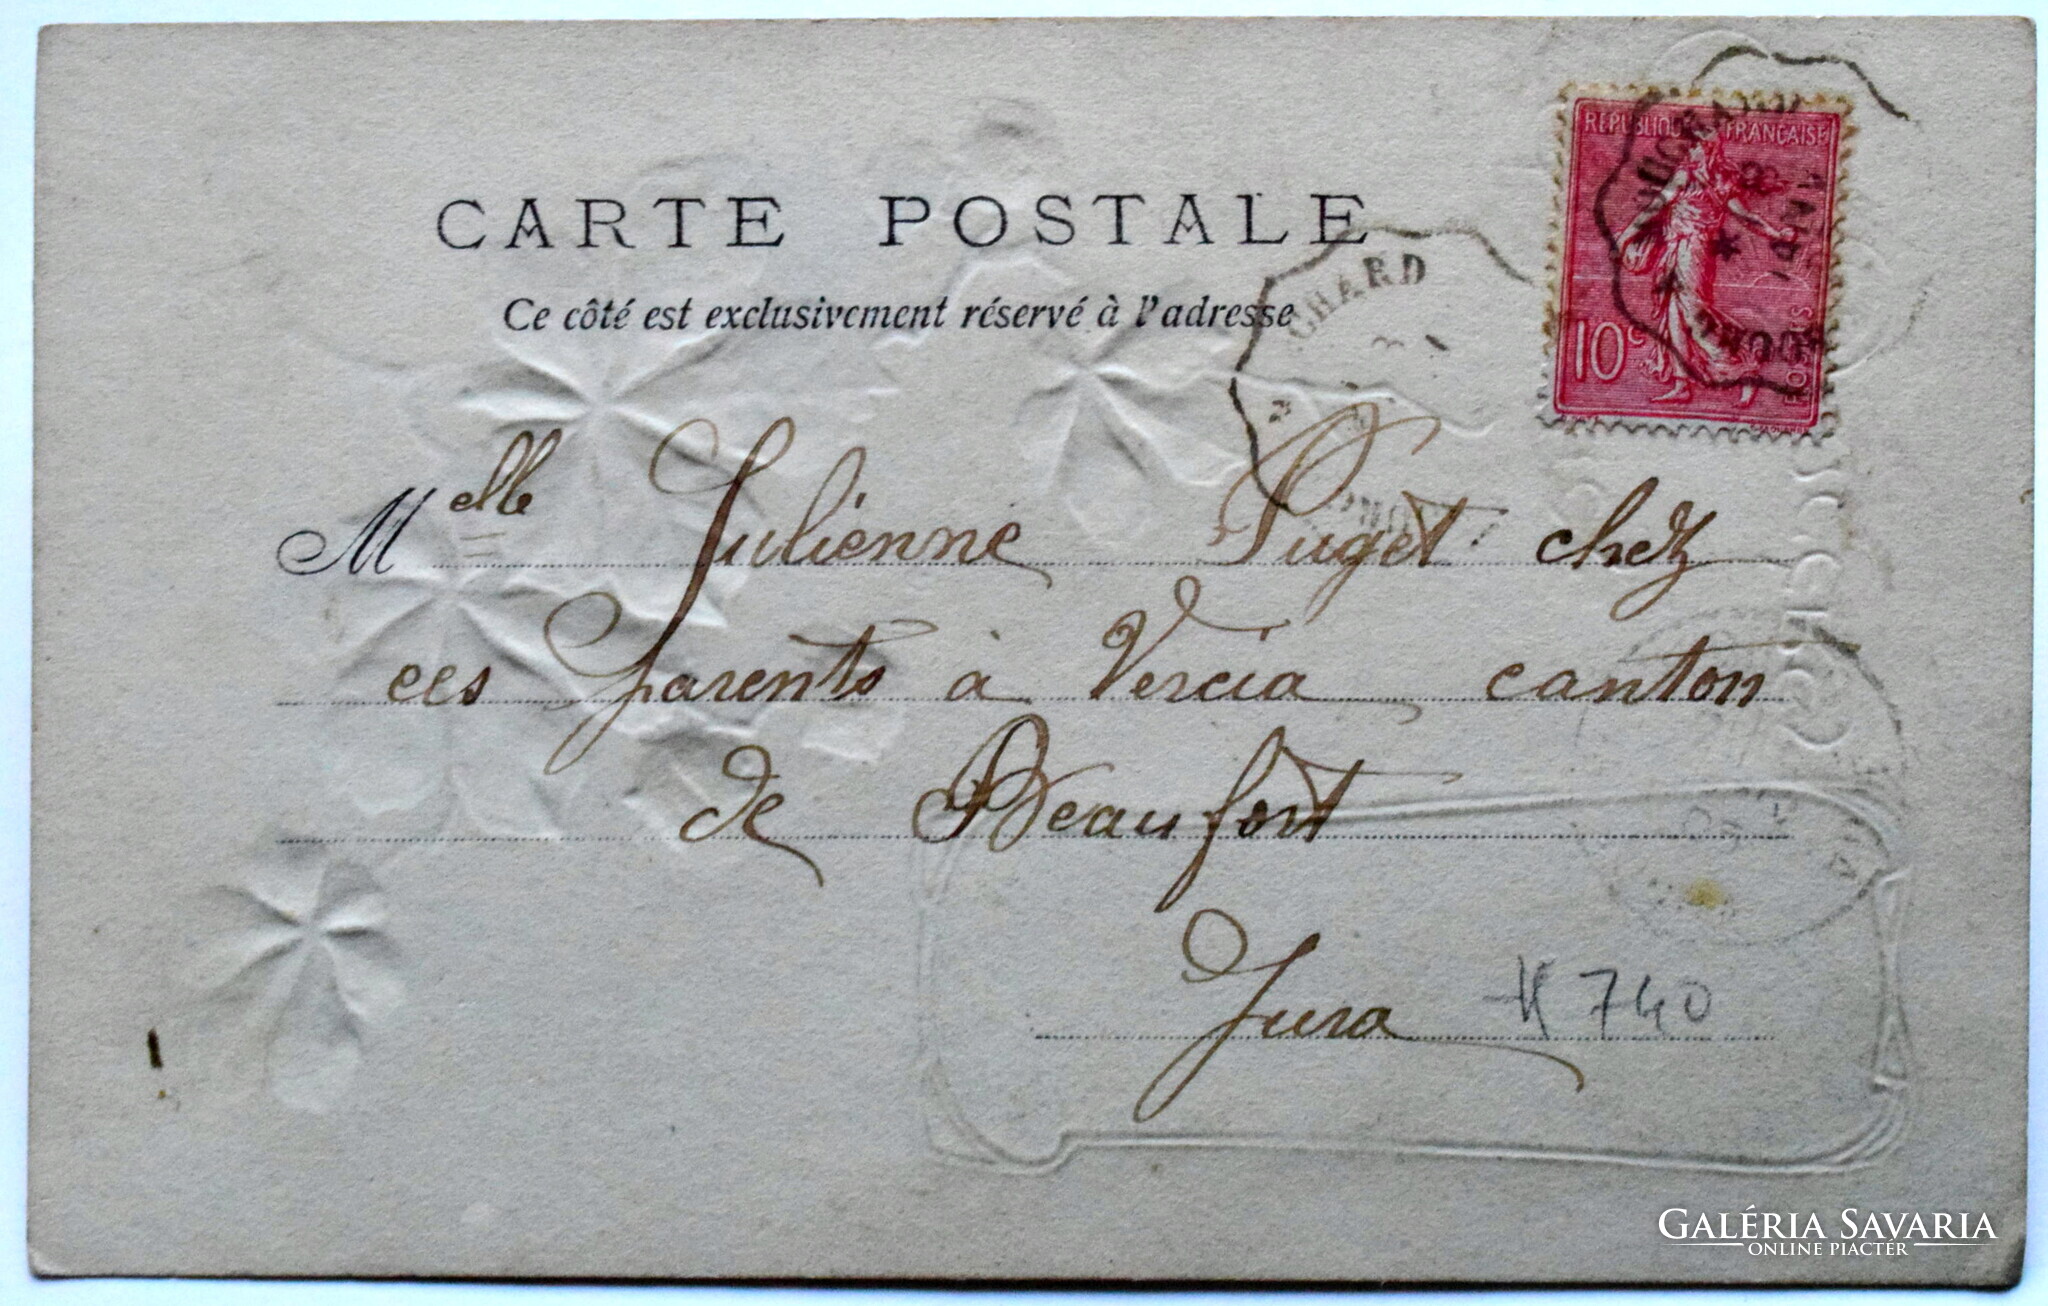 CARTE POSTALE
Ce côté est exclusivement réservé à l'adresse
REPUBLIQUE FRANÇAISE
10c
POSTES
CHARD
Melle Julienne Puget chez
ces parents à Vercia canton
de Beaufort
Jura
740
GALÉRIA SAVARIA
ONLINE PIACTÉR